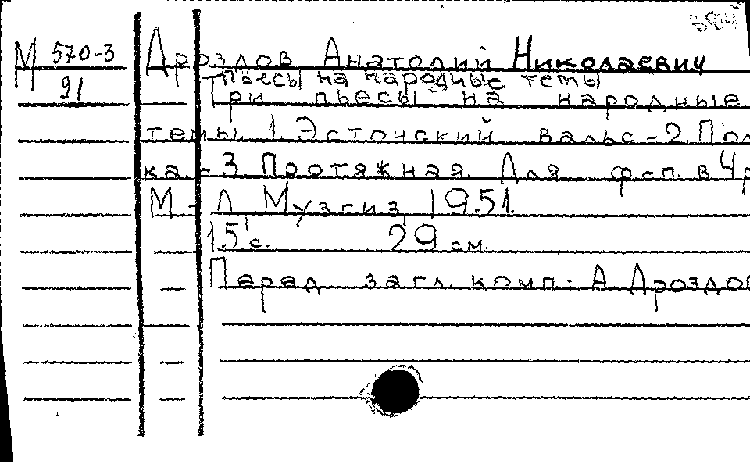 М 570-3
91
Дроздов Анатолий Николаевич
Пьесы на народные темы
Три пьесы на народные
темы. 1. Эстонский вальс - 2. Пол
ка. - 3. Протяжная. Для ф-п. в 4 р
М - Л Музгиз 1951.
15 с. 29 см.
Перед загл. комп. А Дроздов